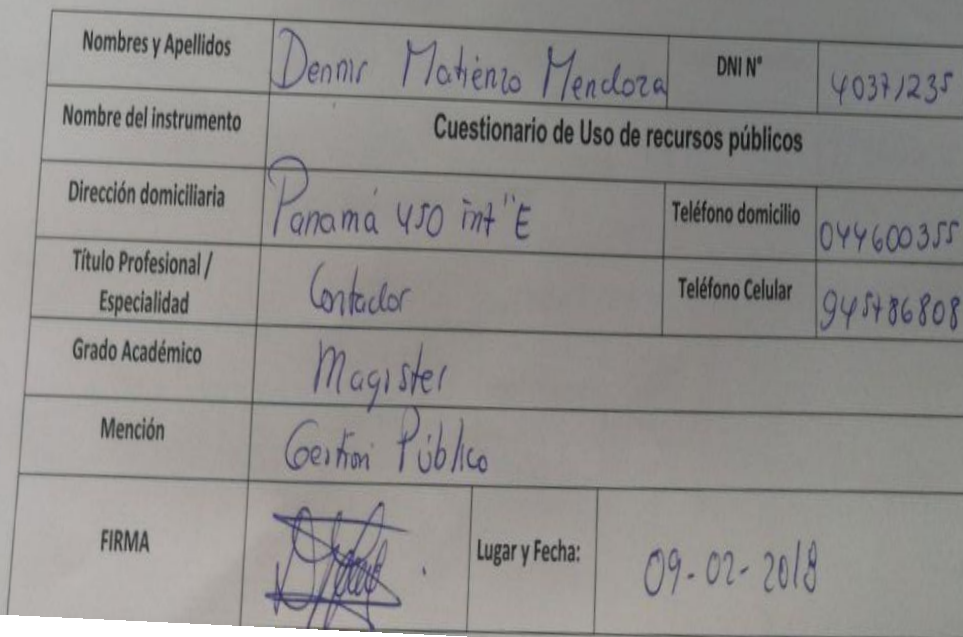 Nombres y Apellidos Dennis Matienzo Mendoza DNI N° 40371235
Nombre del instrumento Cuestionario de Uso de recursos públicos
Dirección domiciliaria Panamá 450 int "E Teléfono domicilio 044600355
Título Profesional /
Especialidad Contador Teléfono Celular 945786808
Grado Académico Magister
Mención Gestión Público
FIRMA Lugar y Fecha: 09-02-2018